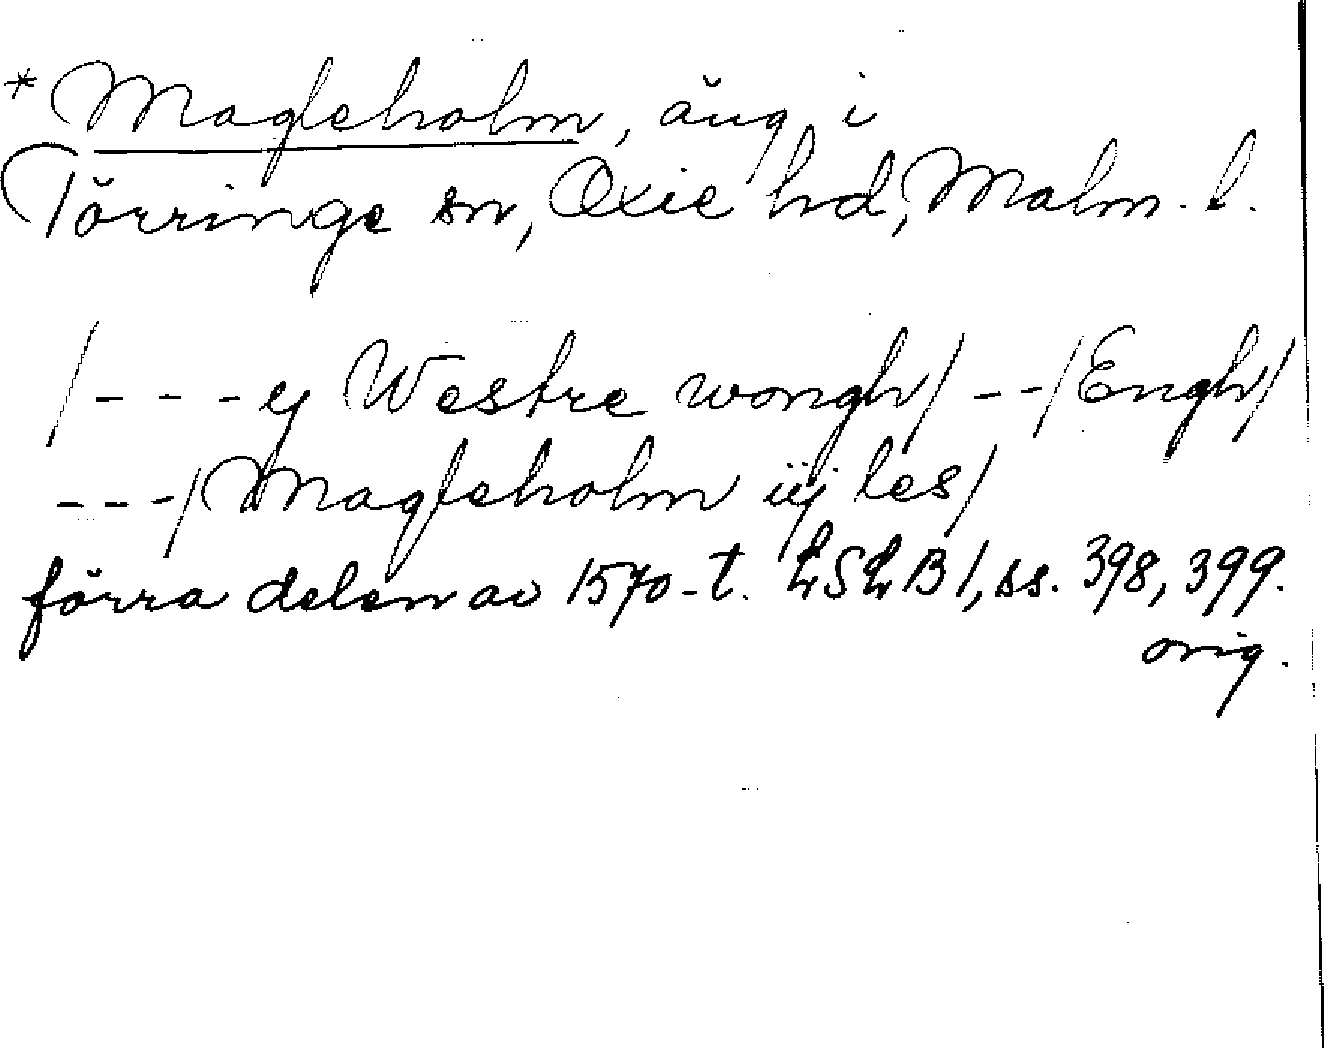 * Magleholm, äng i
Törringe sn, Oxie hd, Malm. l.
/- - - ej Westre wongh/ - - /Engh/
- - -/ Magleholm iij les/
förra delen av 1570-t. LSLB 1, ss. 398, 399.
orig.